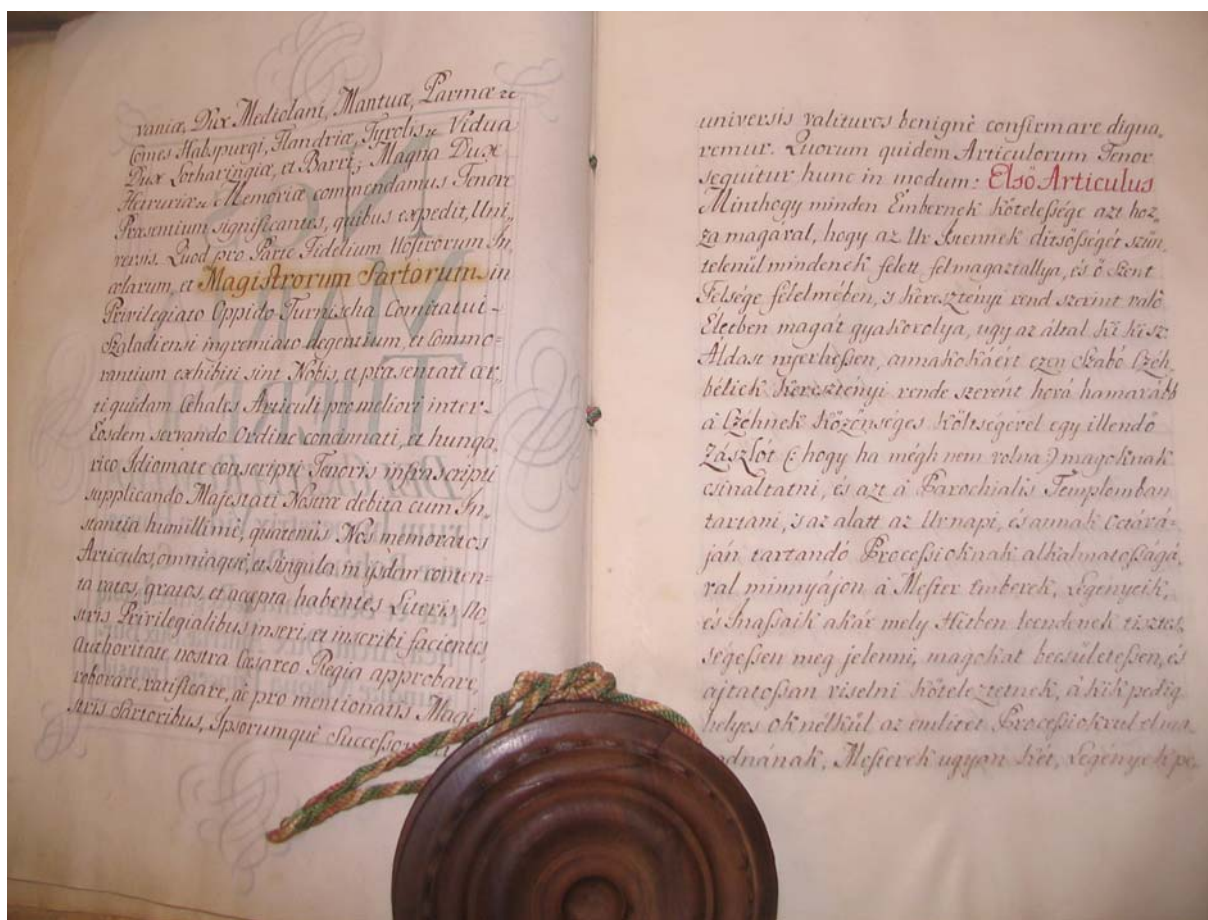 vaniæ, Dux Mediolani, Mantuæ, Parmæ &c
Comes Habspurgi, Flandriæ, Tyrolis &c Vidua
Dux Lotharingiæ, et Barri; Magna Dux
Hetruriæ &c Memoriæ commendamus Tenore
Præsentium significantes, quibus expedit, Uni„
versis. Quod pro Parte Fidelium Nostrorum In„
colarum, et Magistrorum Sartorum in
Privilegiato Oppido Turnischa Comitatui –
Szaladiensi ingremiato degentium, et commo=
rantium exhibiti sint Nobis, et præsentati cer„
ti quidam Cehales Articuli pro meliori inter –
Eosdem servando Ordine concinnati, et hunga„
rico Idiomate conscripti Tenoris infrascripti
supplicando Majestati Nostræ debita cum In„
stantia humillimè, quatenus Nos memoratos
Articulos, omniaque, et singula in ijsdem conten=
ta ratos, gratos, et accepta habentes Literis No„
stris Privilegialibus inseri, et inscribi facientes,
Authoritate nostra Cæsareo Regia approbare,
roborare, ratificare, ac pro mentionatis Magi
stris Sartoribus, Ipsorumquè
universis valituros benignè confirmare digna„
remur. Quorum quidem Articulorum Tenor
sequitur hunc in modum: Elsö Articulus
Minthogy minden Embernek kötelessége azt hoz„
za magával, hogy az Ur Istennek ditsősségét szün„
telenül mindenek felett felmagaztallya, és ő Szent
Felsége félelmében, 's keresztényi rend szerint való
Eletben magát gyakorolya, ugy az által ki kisz:
Áldast nyerhessen, annakokáért ezen Szabó Czéh„
béliek keresztényi rende szerént hová hamarább
à Czéhnek közönséges költségével egy illendő
Zászlót (: hogy ha mégk nem volna :) magoknak
csináltatni, és azt à Parochialis Templomban
tartani, 's az alatt az Urnapi, és annak Octává=
ján tartandó Processioknak alkalmatosságá„
val minnyájon à Mester Emberek, Legényeik,
és Inassaik akár mely Hitben leendenek tisztes„
ségessen meg jelenni, magokat becsületessen, és
ajtatossan viselni köteleztetnek, à kik pedig
helyes ok nélkül az emlitet Processiokrul elma„
Mesterek ugyan két, Legények pe„